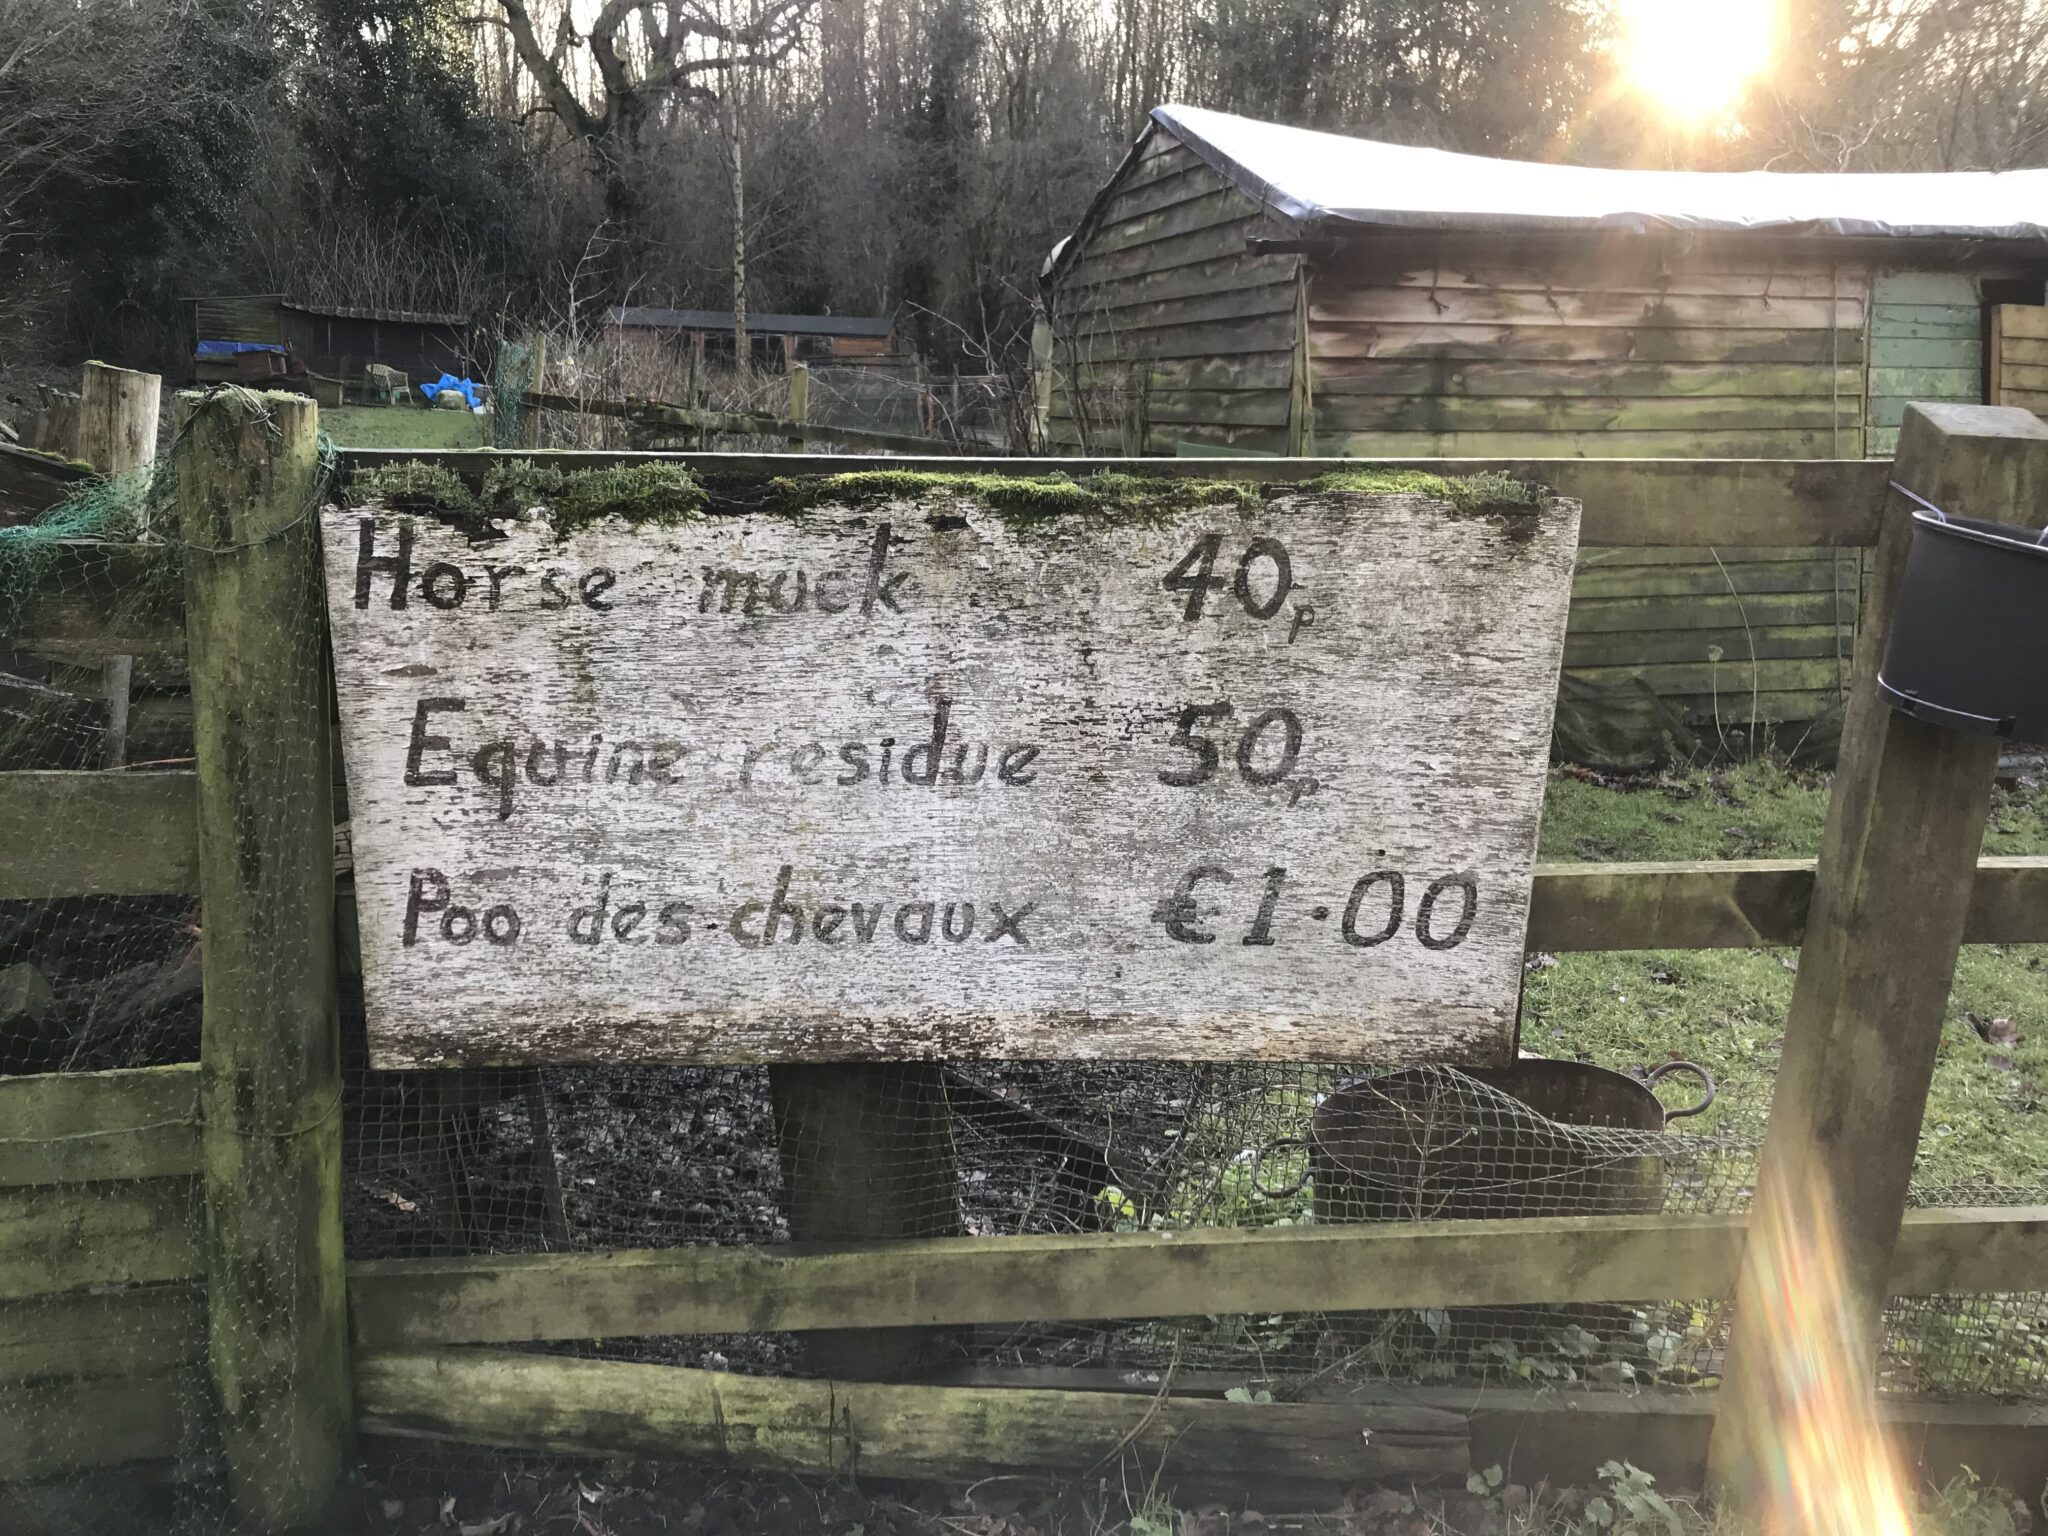 Horse muck 40p
Equine residue 50p
Poo des chevaux €1·00